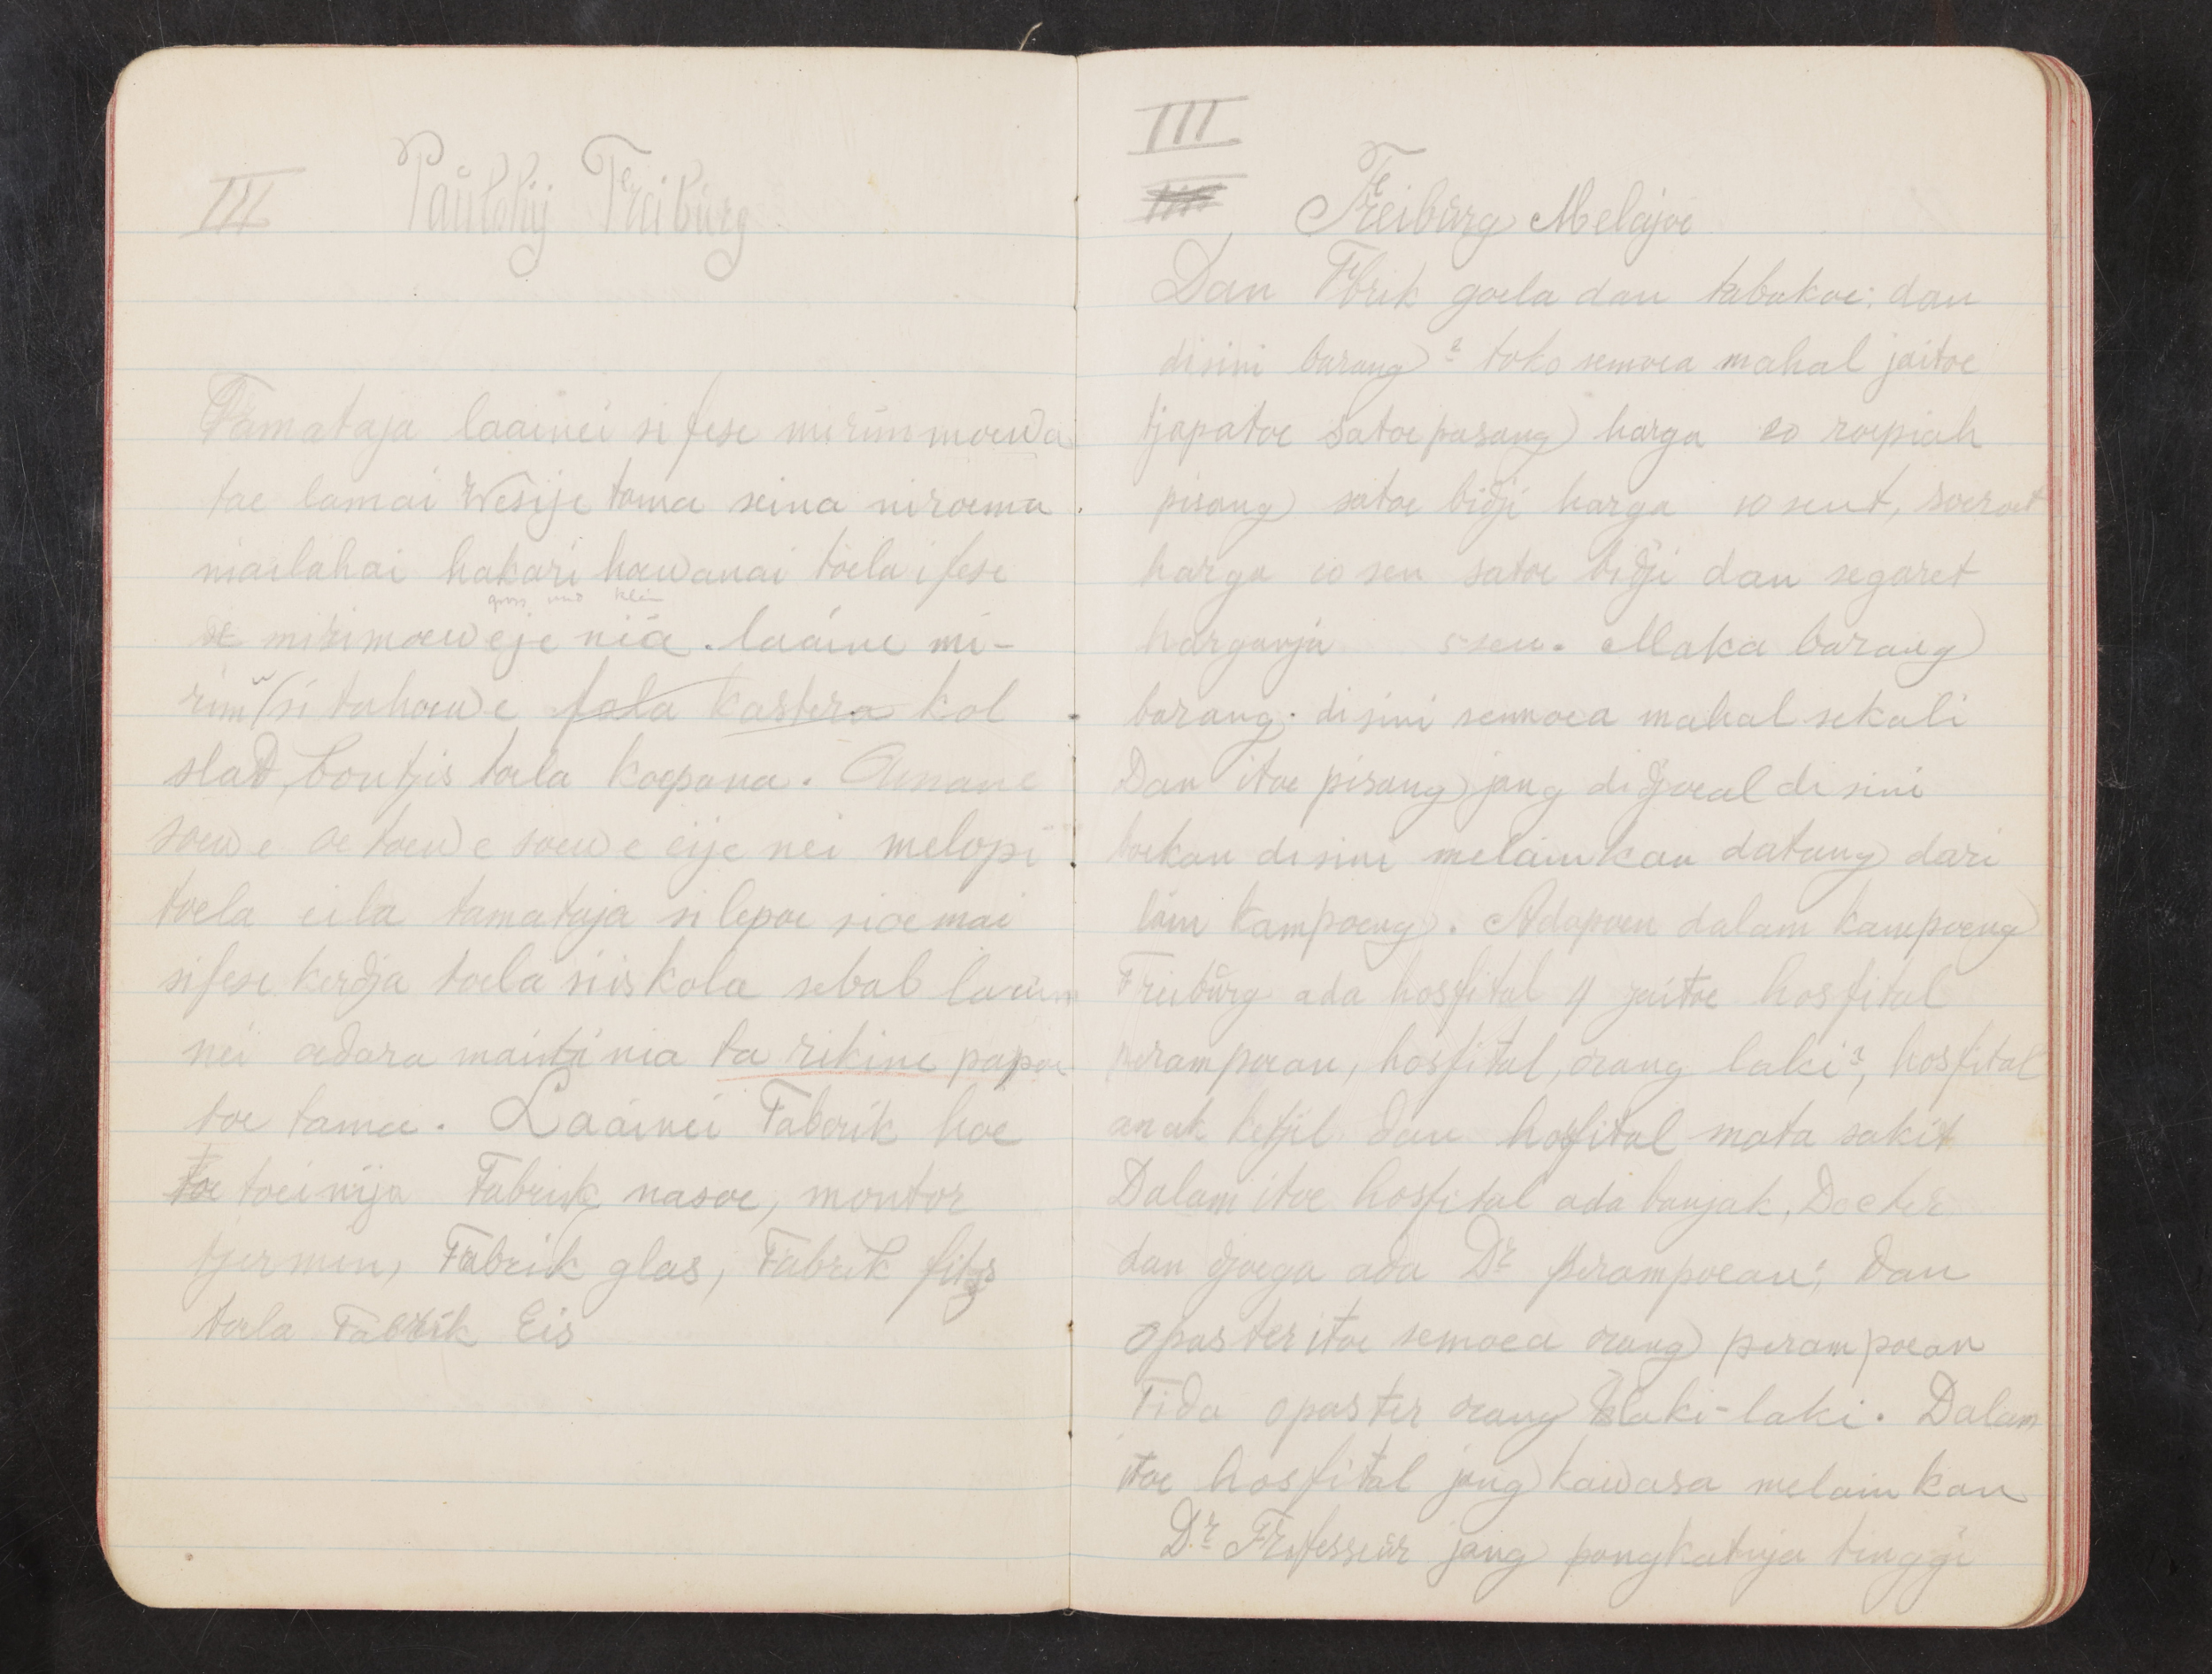 III Paülohij Freibŭrg
Tamataja laainei si fese mirim moewa
toe lamai Wesije tama seina niroema
niailahai hakari hoewanai toela i fese
gross und klein
mirimoeweje nia. laaine mi-
rim (si tahoewe fala kastera kol
slad, bontjis toela koepana. Amane
soewe oe toewe soewe eije nei melopi
toela eila tamataja si lepoe sioemai
sifese kerdja toela siiskola sebab laain
nei oedara mainta nia ta rikine papoe
toe tama. Laainei Faberik hoe
toe toeinija Fabrik nasoe, montor
tjermin, Fabrik glas, Fabrik fits
toela Fabrik Eis
III
Freibŭrg Melajoe
Dan Fbrik goela dan tabakoe; dan
disini barang² toko semoea mahal jaitoe
tjapatoe satoe pasang harga 20 roepiah
pisang satoe bidji harga 10 sent, soeroet
harga 10 sen satoe bidji dan segaret
harganja 5 sen. Maka barang
barang disini semoea mahal sekali
Dan itoe pisang jang didjoeal disini
boekan disini melainkan datang dari
lain kampoeng. Adapoen dalam kampoeng
Freibŭrg ada hosfital 4 jaitoe hosfital
perampoean, hosfital, orang laki², hosfital
anak ketjil dan hosfital mata sakit
Dalam itoe hosfital ada banjak, Docter
dan djoega ada Dr perampoean; Dan
opaster itoe semoea orang perampoean
Tida opaster orang laki-laki. Dalam
itoe hosfital jang kawasa melainkan
Dr. Frofesseŭr jang pangkatnja tinggi